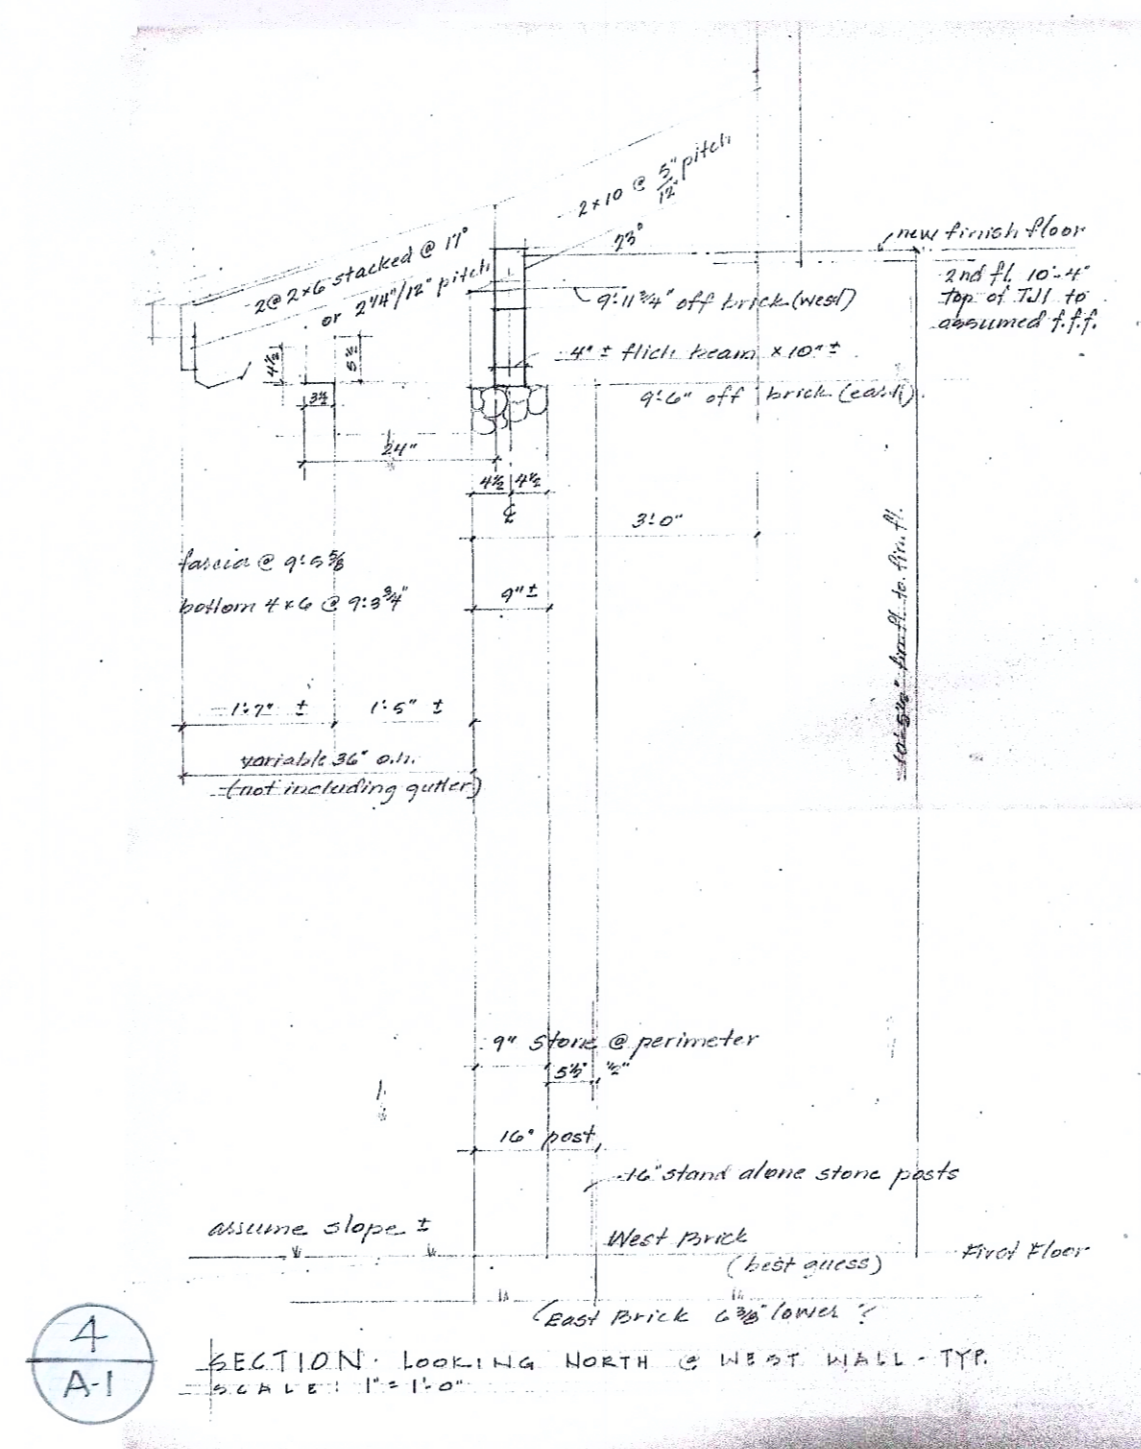 2x10 @ 5"/12" pitch
2@2x6 stacked @ 17°
or 2 1/4"/12" pitch
23°
new finish floor
2nd fl. 10'-4"
top of TJI to
assumed f.f.f.
9'-11 3/4" off brick (west)
4" ± flich beam x 10" ±
9'-6" off brick (east)
4 1/2
5 1/2
3 1/2
24"
4 1/2 4 1/2
℄
3'-0"
fascia @ 9'-5 5/8
bottom 4x6 @ 9'-3 3/4"
9" ±
fin. fl. to fin. fl.
1'-7" ± 1'-5" ±
variable 36" o.h.
(not including gutter)
9" stone @ perimeter
5 1/2" 1/2"
16" post
16" stand alone stone posts
assume slope ±
West Brick
(best guess)
First Floor
(East Brick 6 3/8" lower ?
4
A-1
SECTION · LOOKING NORTH @ WEST WALL - TYP.
SCALE: 1" = 1'-0"